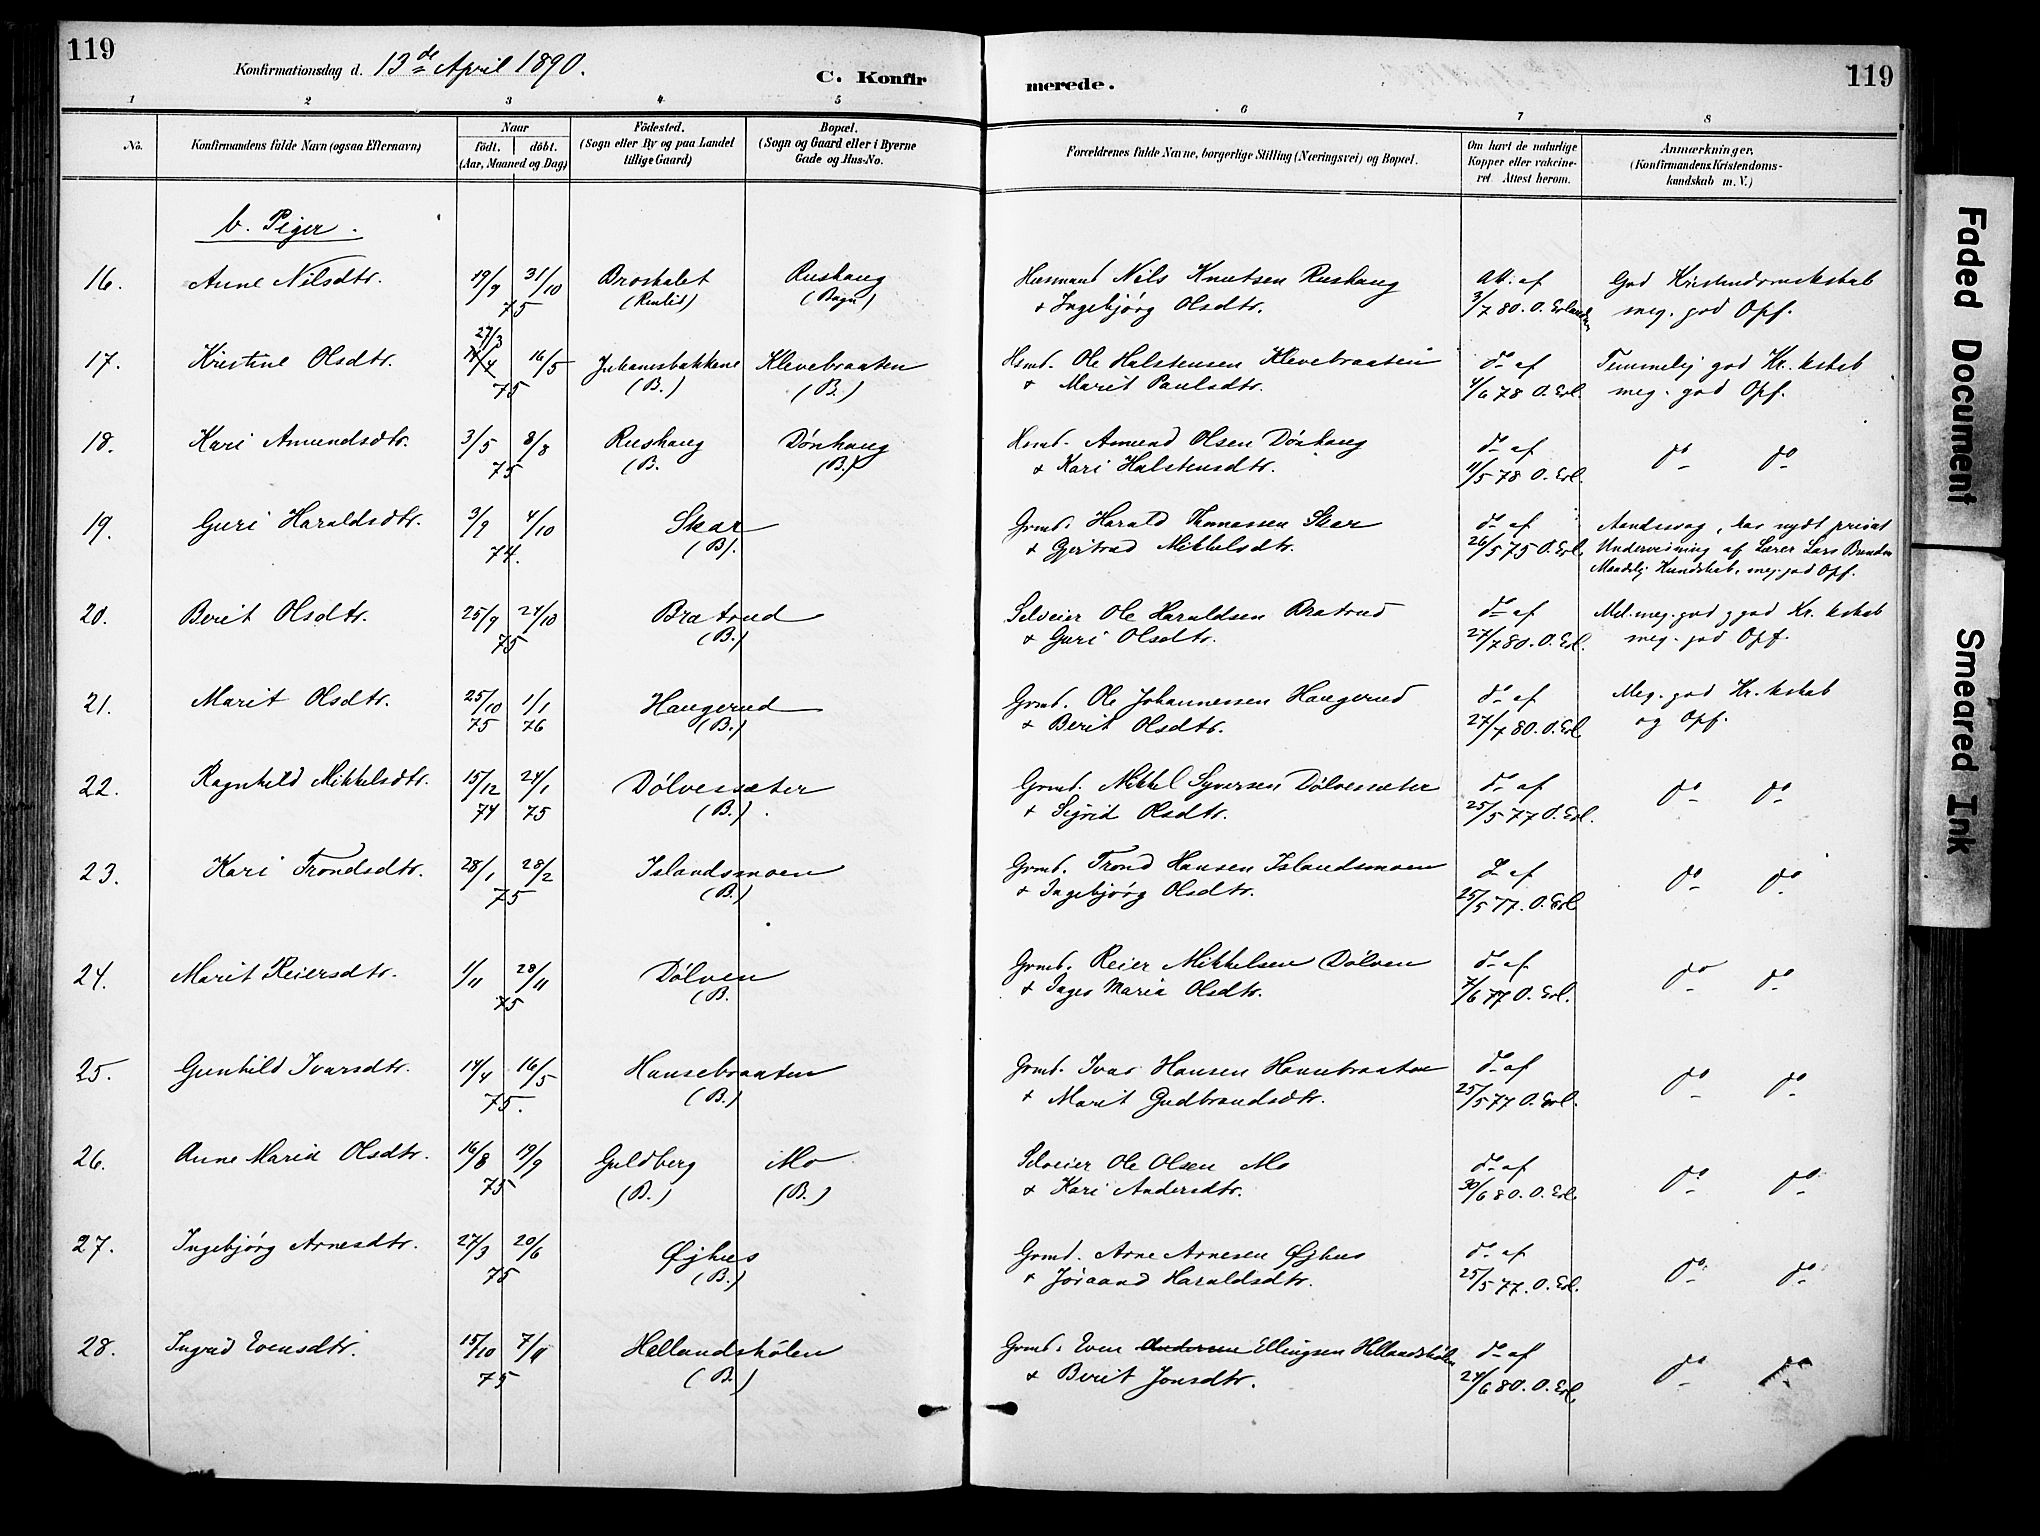 119
Konfirmationsdag d. 13de April 1890.
C. Konfirmerede.
119
1 2 3 4 5 6 7 8
No.
Konfirmandens fulde Navn (ogsaa Efternavn)
Naar
födt. döbt.
(Aar, Maaned og Dag)
Födested.
(Sogn eller By og paa Landet
tillige Gaard)
Bopæl.
(Sogn og Gaard eller i Byerne
Gade og Hus-No.
Forældrenes fulde Navne, borgerlige Stilling (Næringsvei) og Bopæl.
Om havt de naturlige
Kopper eller vakcine-
ret. Attest herom.
Anmærkninger.
(Konfirmandens Kristendoms-
kundskab m. V.)
b. Piger.
16. Anne Nilsdtr. 19/9 31/10 Broskalet Rushaug Husmand Nils Knutsen Rushaug Att. af God Kristendomskskab
75 (Reinlid) (Bagn) + Ingebjørg Olsdtr. 3/7 80. O. Erlandsen meg. god Opf.
27/3
17. Kristine Olsdtr. 14/4 16/5 Johannsbakkene Klevebraaten Hsmd. Ole Halstensen Klevebraaten do af Temmelig god Kr. kskab
75 (B.) (B.) + Marit Paulsdtr. 4/6 78 O. Erl. meg. god Opf.
18. Kari Amundsdtr. 3/5 8/8 Rushaug Dónhaug Hsmd. Amund Olsen Dónhaug do af do do
75 (B. (B.) + Kari Halstensdtr. 11/5 78 O. Erl.
19. Guri Haraldsdtr. 3/9 4/10 Skar Grmd. Harald Thomassen Skar do af Aandssvag, har nydt privat
74. (B). + Gjertrud Mikkelsdtr. 26/5 75 O. Erl. Undervisning af Lærer Lars
Maadelig Kundskab, meg. god Opf.
20. Berit Olsdtr. 25/9 24/10 Bratrud Selveier Ole Haraldsen Bratrud do af Mel. meg. god g god Kr. kskab
75 (B.) + Guri Olsdtr. 27/7 80. O. Erl. meg. god Opf.
21. Marit Olsdtr. 25/10 1/1 Haugerud Grmd. Ole Johannessen Haugerud do af Meg. god Kr. kskab
75 76 (B.) + Berit Olsdtr. 27/7 80. O. Erl. og Opf.
22. Ragnhild Mikkelsdtr. 15/12 24/1 Dölvesæter Grmd. Mikkel Syversen Dölvesæter do af do do
74 75 (B.) + Sigrid Olsdtr. 25/5 77 O. Erl.
23. Kari Trondsdtr. 28/1 28/2 Islandsmoen Grmd. Trond Hansen Islandsmoen do af do do
75 (B.) + Ingebjörg Olsdtr. 25/5 77. O. Erl.
24. Marit Reiersdtr. 1/11 28/11 Dölven Grmd. Reier Mikkelsen Dölven do af do do
75 (B. + Inger Maria Olsdtr. 7/6 77 O. Erl.
25. Gunhild Ivarsdtr. 14/4 16/5 Hansebraaten Grmd. Ivar Hansen Hansebraaten do af do do
75. (B.) + Marit Gudbrandsdtr. 25/5 77 O. Erl.
26. Anne Maria Olsdtr. 16/8 19/9 Guldberg Mo Selveier Ole Olsen Mo do af do do
75 (B.) (B.) + Kari Andersdtr. 30/6 80. O. Erl.
27. Ingebjörg Arnesdtr. 27/3 20/6 Øjhus Grmd. Arne Arnesen Øjhus do af do do
75 (B.) + Jøraand Haraldsdtr. 25/5 77. O. Erl.
28. Ingrid Evensdtr. 15/10 7/11 Hellandshölen Grmd. Even Andersen Ellingsen Hellandshölen do af do do
75 (B.) + Berit Jonsdtr. 24/6 80. O. Erl.
Faded Document
Smeared Ink